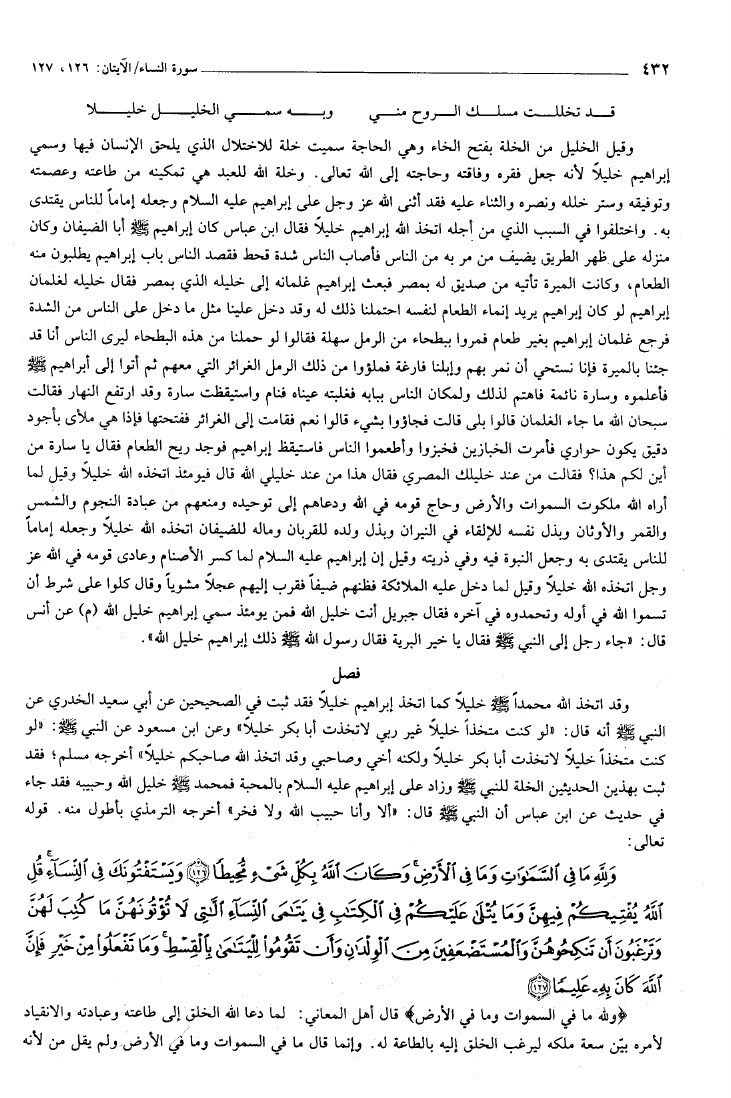 ٤٣٢ سورة النساء/ الآيتان: ١٢٦، ١٢٧
قـــد تخللـــت مسلـــك الـــروح منـــي وبـــه سمـــي الخليـــل خليـــلا
وقيل الخليل من الخلة بفتح الخاء وهي الحاجة سميت خلة للاختلال الذي يلحق الإنسان فيها وسمي
إبراهيم خليلاً لأنه جعل فقره وفاقته وحاجته إلى الله تعالى. وخلة الله للعبد هي تمكينه من طاعته وعصمته
وتوفيقه وستر خلله ونصره والثناء عليه فقد أثنى الله عز وجل على إبراهيم عليه السلام وجعله إماماً للناس يقتدى
به. واختلفوا في السبب الذي من أجله اتخذ الله إبراهيم خليلاً فقال ابن عباس كان إبراهيم ﷺ أبا الضيفان وكان
منزله على ظهر الطريق يضيف من مر به من الناس فأصاب الناس شدة قحط فقصد الناس باب إبراهيم يطلبون منه
الطعام، وكانت الميرة تأتيه من صديق له بمصر فبعث إبراهيم غلمانه إلى خليله الذي بمصر فقال خليله لغلمان
إبراهيم لو كان إبراهيم يريد إنماء الطعام لنفسه احتملنا ذلك له وقد دخل علينا مثل ما دخل على الناس من الشدة
فرجع غلمان إبراهيم بغير طعام فمروا ببطحاء من الرمل سهلة فقالوا لو حملنا من هذه البطحاء ليرى الناس أنا قد
جئنا بالميرة فإنا نستحي أن نمر بهم وإبلنا فارغة فملؤوا من ذلك الرمل الغرائر التي معهم ثم أتوا إلى أبراهيم ﷺ
فأعلموه وسارة نائمة فاهتم لذلك ولمكان الناس ببابه فغلبته عيناه فنام واستيقظت سارة وقد ارتفع النهار فقالت
سبحان الله ما جاء الغلمان قالوا بلى قالت فجاؤوا بشيء قالوا نعم فقامت إلى الغرائر ففتحتها فإذا هي ملأى بأجود
دقيق يكون حواري فأمرت الخبازين فخبزوا وأطعموا الناس فاستيقظ إبراهيم فوجد ريح الطعام فقال يا سارة من
أين لكم هذا؟ فقالت من عند خليلك المصري فقال هذا من عند خليلي الله قال فيومئذ اتخذه الله خليلاً وقيل لما
أراه الله ملكوت السموات والأرض وحاج قومه في الله ودعاهم إلى توحيده ومنعهم من عبادة النجوم والشمس
والقمر والأوثان وبذل نفسه للإلقاء في النيران وبذل ولده للقربان وماله للضيفان اتخذه الله خليلاً وجعله إماماً
للناس يقتدى به وجعل النبوة فيه وفي ذريته وقيل إن إبراهيم عليه السلام لما كسر الأصنام وعادى قومه في الله عز
وجل اتخذه الله خليلاً وقيل لما دخل عليه الملائكة فظنهم ضيفاً فقرب إليهم عجلاً مشوياً وقال كلوا على شرط أن
تسموا الله في أوله وتحمدوه في آخره فقال جبريل أنت خليل الله فمن يومئذ سمي إبراهيم خليل الله (م) عن أنس
قال: «جاء رجل إلى النبي ﷺ فقال يا خير البرية فقال رسول الله ﷺ ذلك إبراهيم خليل الله».
فصل
وقد اتخذ الله محمداً ﷺ خليلاً كما اتخذ إبراهيم خليلاً فقد ثبت في الصحيحين عن أبي سعيد الخدري عن
النبي ﷺ أنه قال: «لو كنت متخذاً خليلاً غير ربي لاتخذت أبا بكر خليلاً» وعن ابن مسعود عن النبي ﷺ: «لو
كنت متخذاً خليلاً لاتخذت أبا بكر خليلاً ولكنه أخي وصاحبي وقد اتخذ الله صاحبكم خليلاً» أخرجه مسلم؛ فقد
ثبت بهذين الحديثين الخلة للنبي ﷺ وزاد على إبراهيم عليه السلام بالمحبة فمحمد ﷺ خليل الله وحبيبه فقد جاء
في حديث عن ابن عباس أن النبي ﷺ قال: «ألا وأنا حبيب الله ولا فخر» أخرجه الترمذي بأطول منه. قوله
تعالى:
وَلِلَّهِ مَا فِي السَّمَاوَاتِ وَمَا فِي الْأَرْضِ وَكَانَ اللَّهُ بِكُلِّ شَيْءٍ مُّحِيطًا ﴿١٢٦﴾ وَيَسْتَفْتُونَكَ فِي النِّسَاءِ قُلِ
اللَّهُ يُفْتِيكُمْ فِيهِنَّ وَمَا يُتْلَى عَلَيْكُمْ فِي الْكِتَابِ فِي يَتَامَى النِّسَاءِ الَّتِي لَا تُؤْتُونَهُنَّ مَا كُتِبَ لَهُنَّ
وَتَرْغَبُونَ أَن تَنكِحُوهُنَّ وَالْمُسْتَضْعَفِينَ مِنَ الْوِلْدَانِ وَأَن تَقُومُوا لِلْيَتَامَى بِالْقِسْطِ وَمَا تَفْعَلُوا مِنْ خَيْرٍ فَإِنَّ
اللَّهَ كَانَ بِهِ عَلِيمًا ﴿١٢٧﴾
﴿ولله ما في السموات وما في الأرض﴾ قال أهل المعاني: لما دعا الله الخلق إلى طاعته وعبادته والانقياد
لأمره بيّن سعة ملكه ليرغب الخلق إليه بالطاعة له. وإنما قال ما في السموات وما في الأرض ولم يقل من لأنه